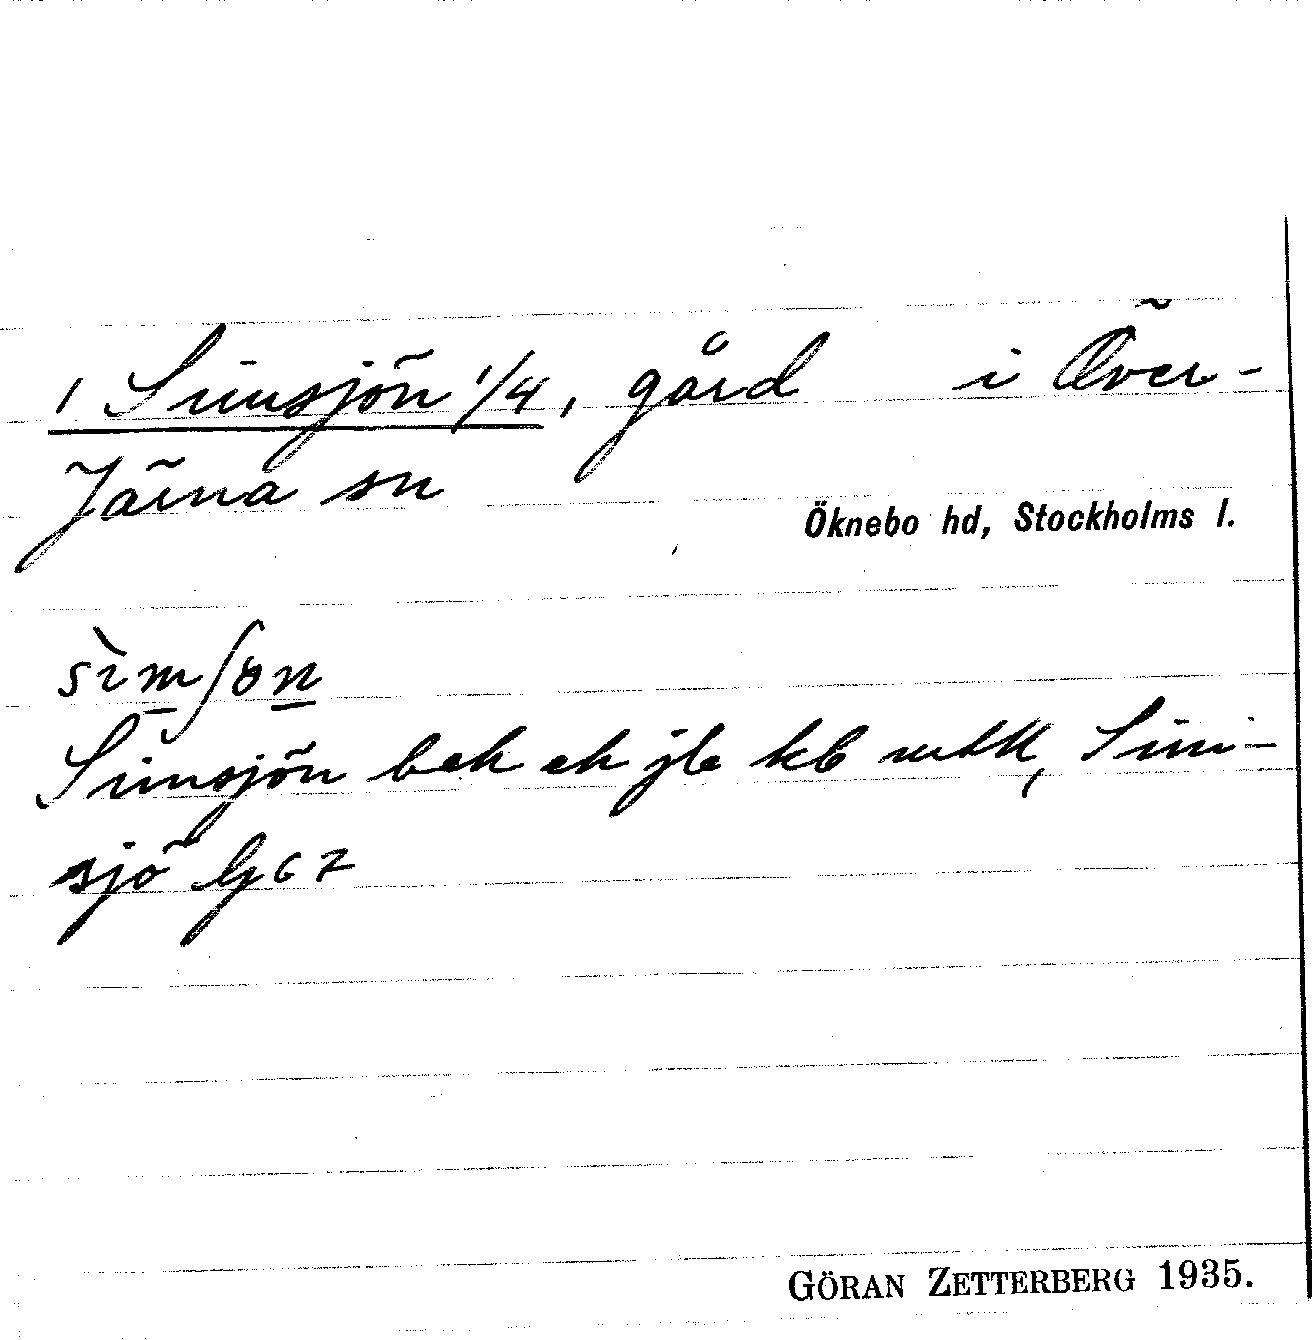 1 Simsjön 1/4, gård i Över-
Järna sn
Öknebo hd, Stockholms l.
sìmʃɵn
Simsjön bek ek jb kb mtlK, Sim-
sjö Gg 67
GÖRAN ZETTERBERG 1935.